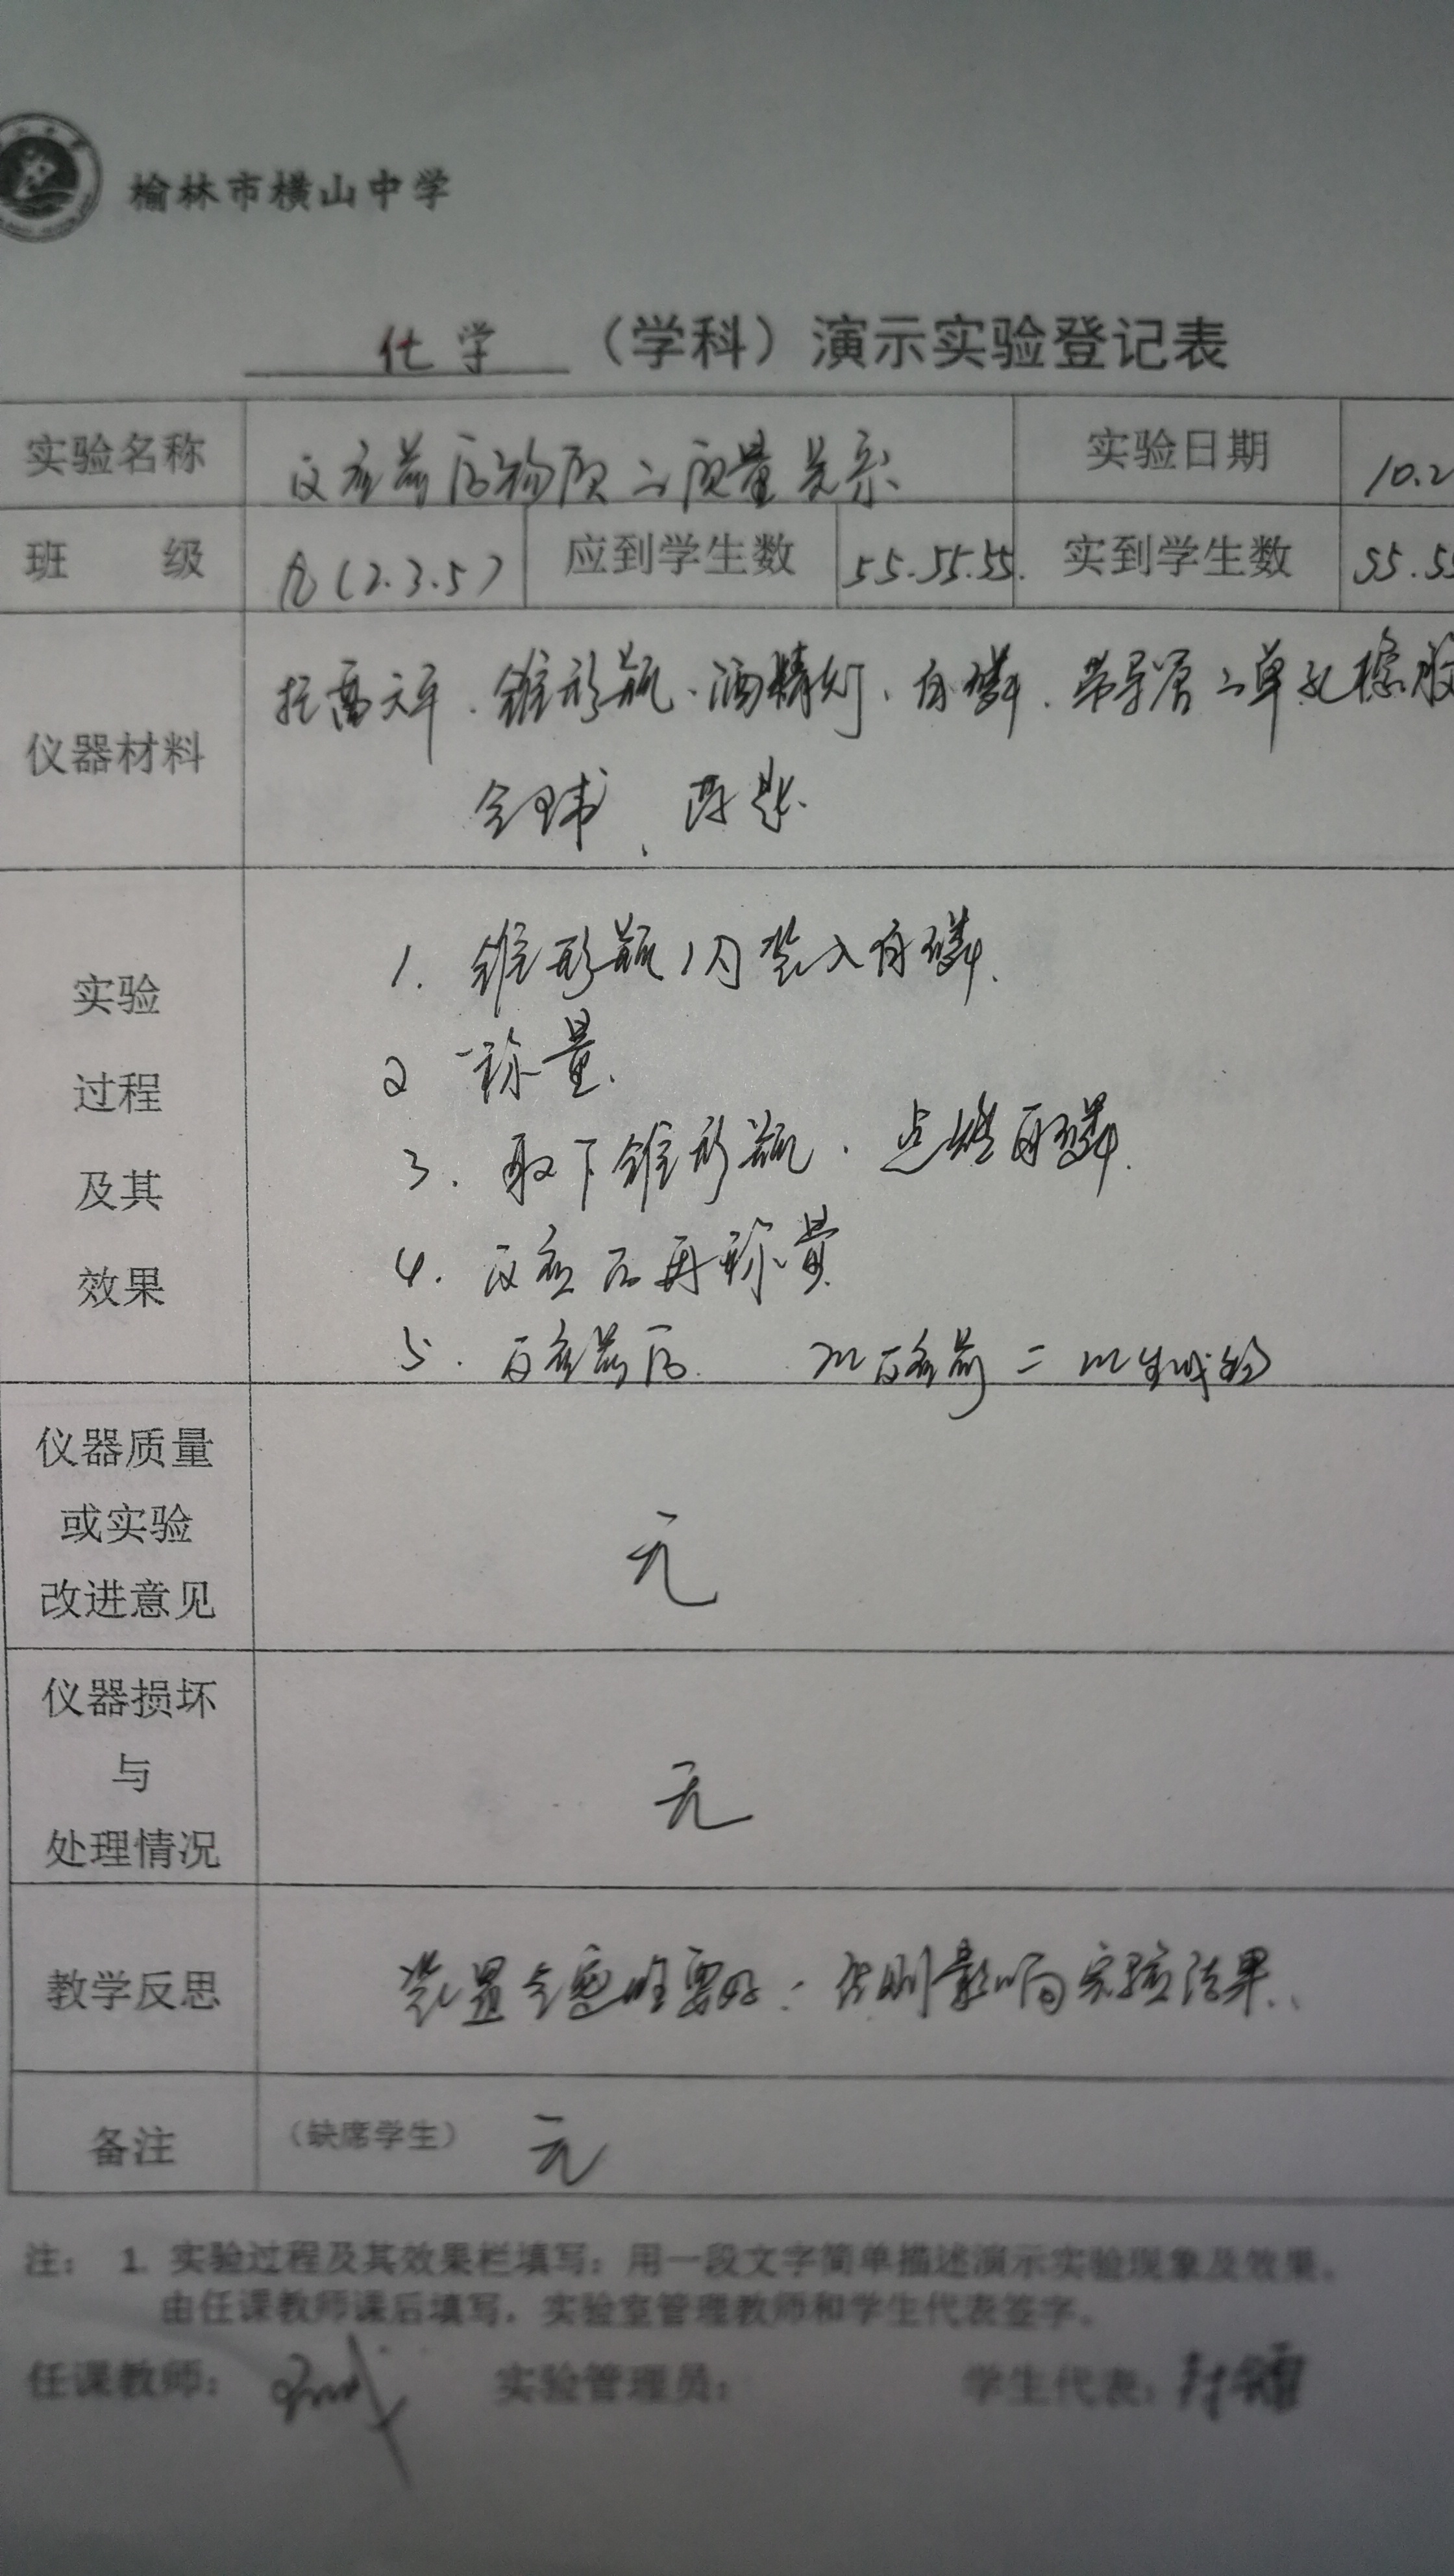 榆林市横山中学
化学 （学科）演示实验登记表
实验名称 反应前后物质的质量关系 实验日期 10.2
班 级 九(2.3.5) 应到学生数 55.55.55. 实到学生数 55.55
仪器材料 托盘天平.锥形瓶、酒精灯、白磷.带导管的单孔橡胶
实验
过程
及其
效果
1. 锥形瓶内装入白磷.
2 称量.
3. 取下锥形瓶.点燃白磷.
4. 反应后再称量
5. 反应前后. m反应前 = m生成物
仪器质量
或实验
改进意见
无
仪器损坏
与
处理情况
无
教学反思 装置气密性要好：否则影响实验结果.
备注 （缺席学生） 无
注： 1. 实验过程及其效果栏填写：用一段文字简单描述演示实验现象及效果。
由任课教师课后填写，实验室管理教师和学生代表签字。
任课教师： 实验管理员： 学生代表：